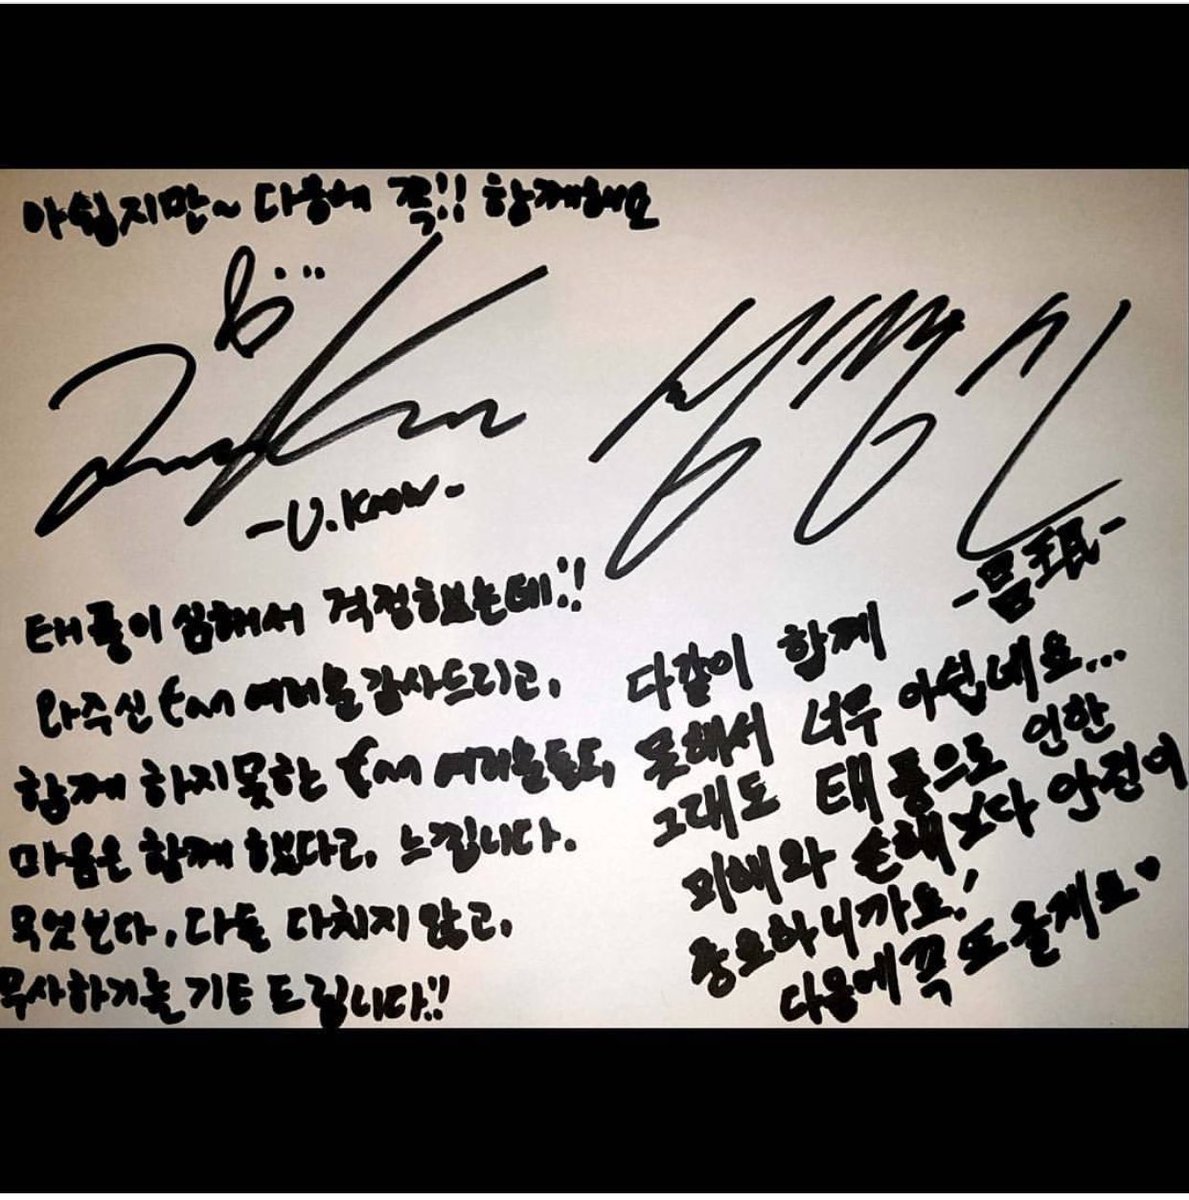 아쉽지만~ 다음에 꼭!! 함께해요
-U.Know-
태풍이 심해서 걱정했는데!!
와주신 fan 여러분 감사드리고,
함께 하지못한 fan 여러분들도,
마음은 함께 했다고, 느낍니다.
무엇보다, 다들 다치지 않고,
무사하기를 기도 드립니다!!
다같이 함께
못해서 너무 아쉽네요...
그래도 태풍으로 인한
피해와 손해보다 안전이
중요하니까요!
다음에 꼭 또 올게요♥